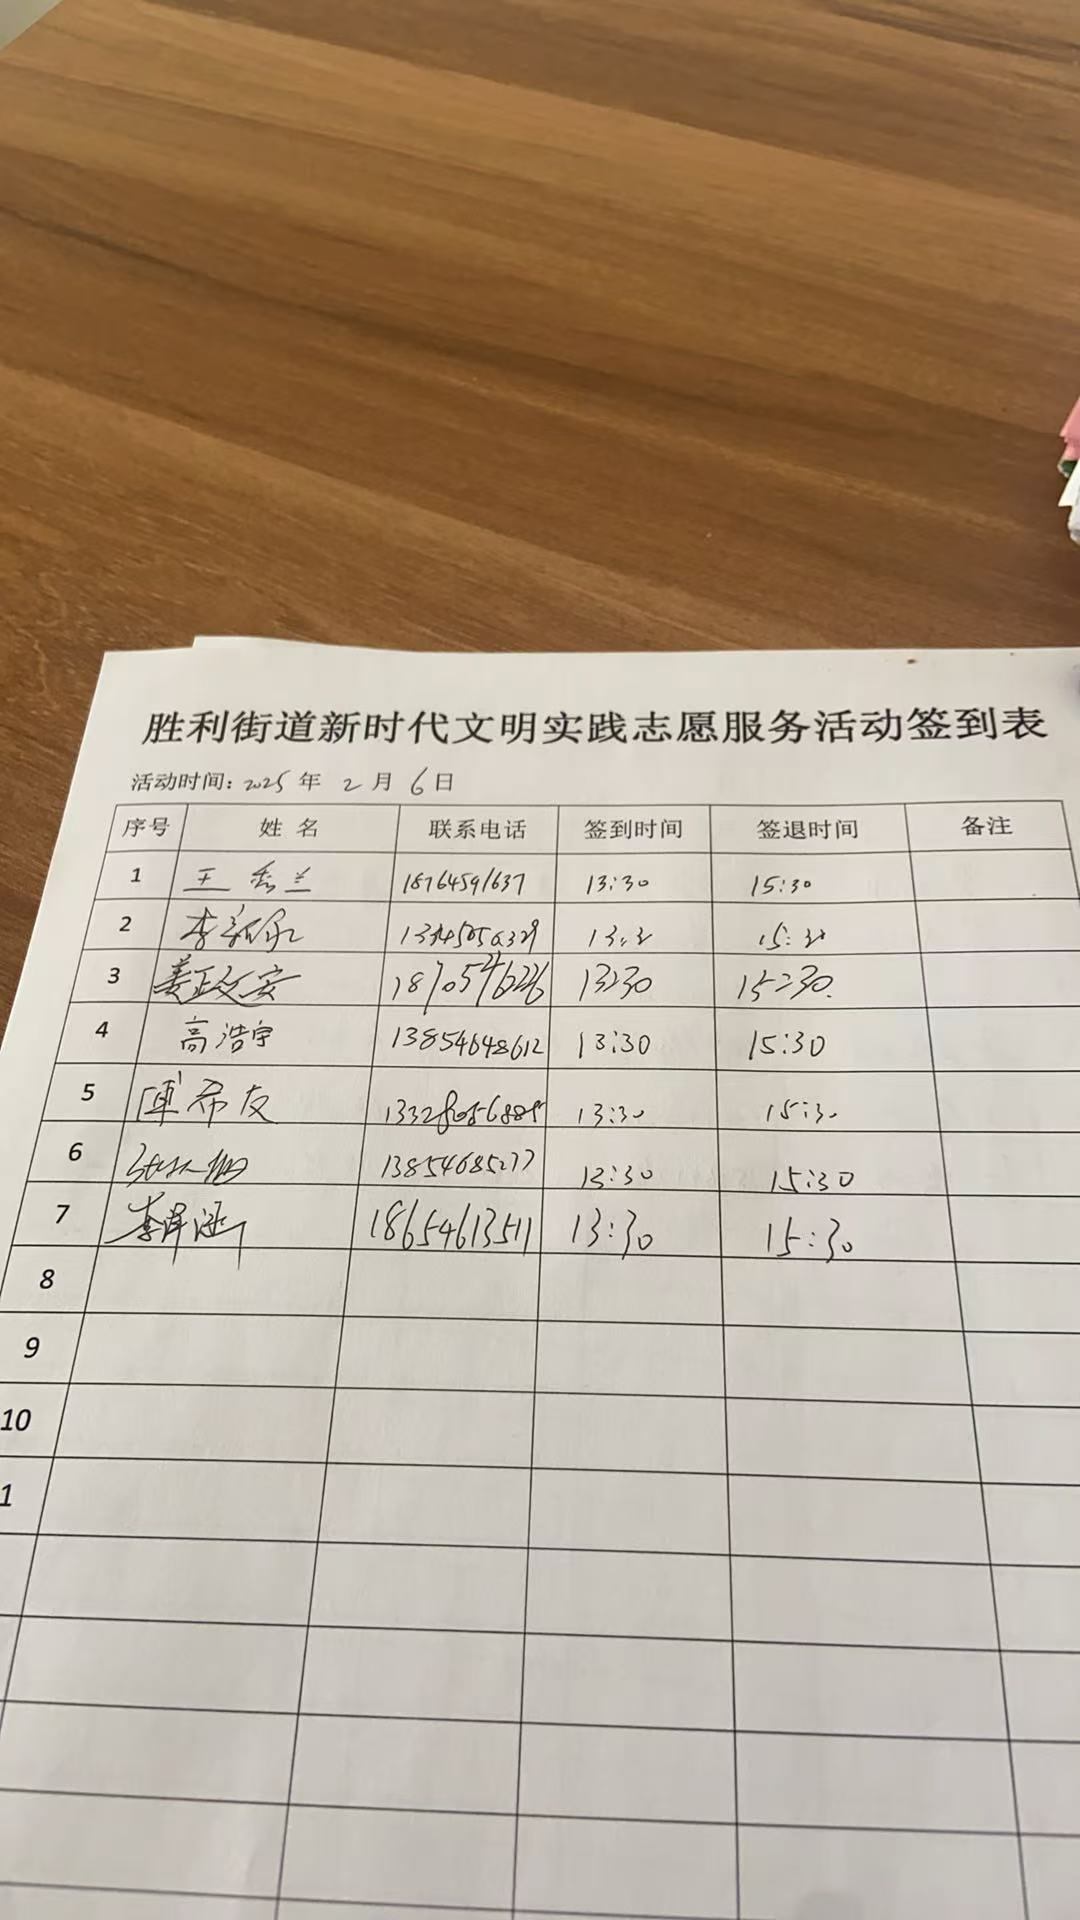 胜利街道新时代文明实践志愿服务活动签到表
活动时间: 2025 年 2 月 6 日
序号 姓 名 联系电话 签到时间 签退时间 备注
1 王秀兰 18764591637 13:30 15:30
2 李 13:30 15:30
3 姜政安 13:30 15:30
4 高浩宇 13854648612 13:30 15:30
5 陈希友 13:30 15:30
6 13854685277 13:30 15:30
7 李泽涵 18654613511 13:30 15:30
8
9
10
1